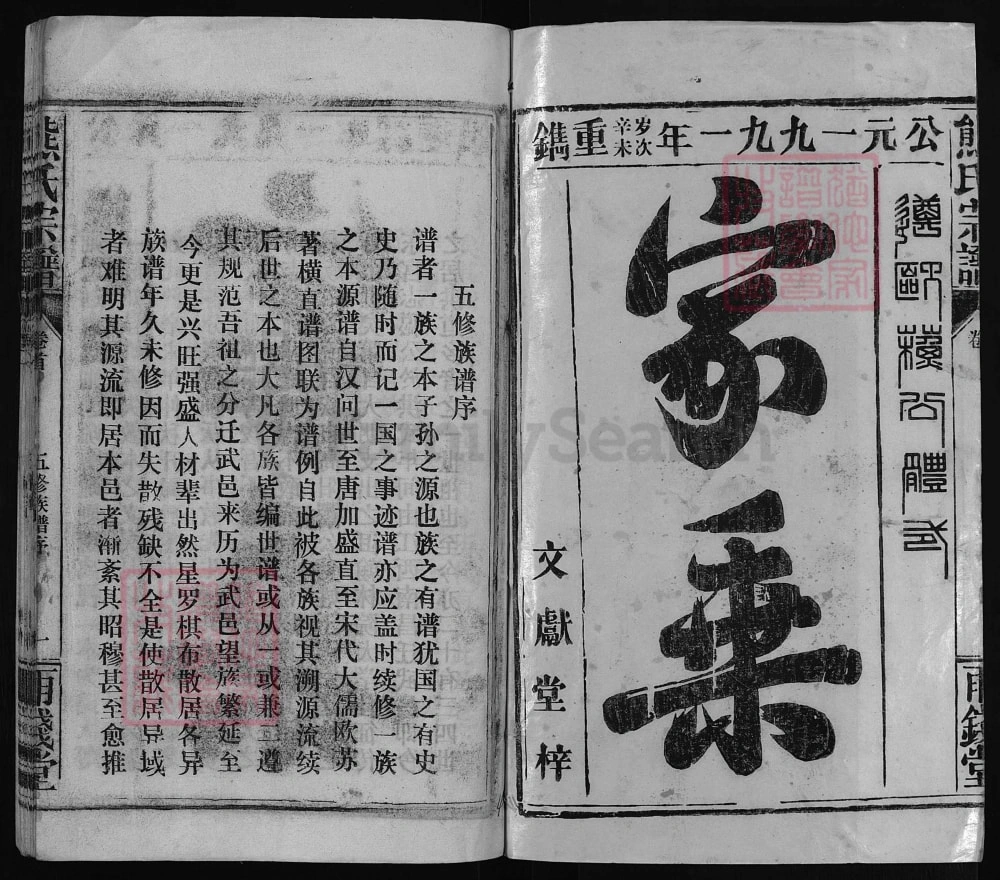 公元一九九一年岁次辛未重鐫
遵歐蘇公體式
家乘
文獻堂梓
熊氏宗譜
雨錢堂
五修族谱序
谱者一族之本子孙之源也族之有谱犹国之有史
史乃随时而记一国之事迹谱亦应盖时续修一族
之本源谱自汉问世至唐加盛直至宋代大儒欧苏
著横直谱图联为谱例自此被各族视其溯源流续
后世之本也大凡各族皆编世谱或从一或兼三遵
其规范吾祖之分迁武邑来历为武邑望族繁延至
今更是兴旺强盛人材辈出然星罗棋布散居各异
族谱年久未修因而失散残缺不全是使散居异域
者难明其源流即居本邑者渐紊其昭穆甚至愈推
熊氏宗譜
卷首
五修族谱序
一
雨錢堂